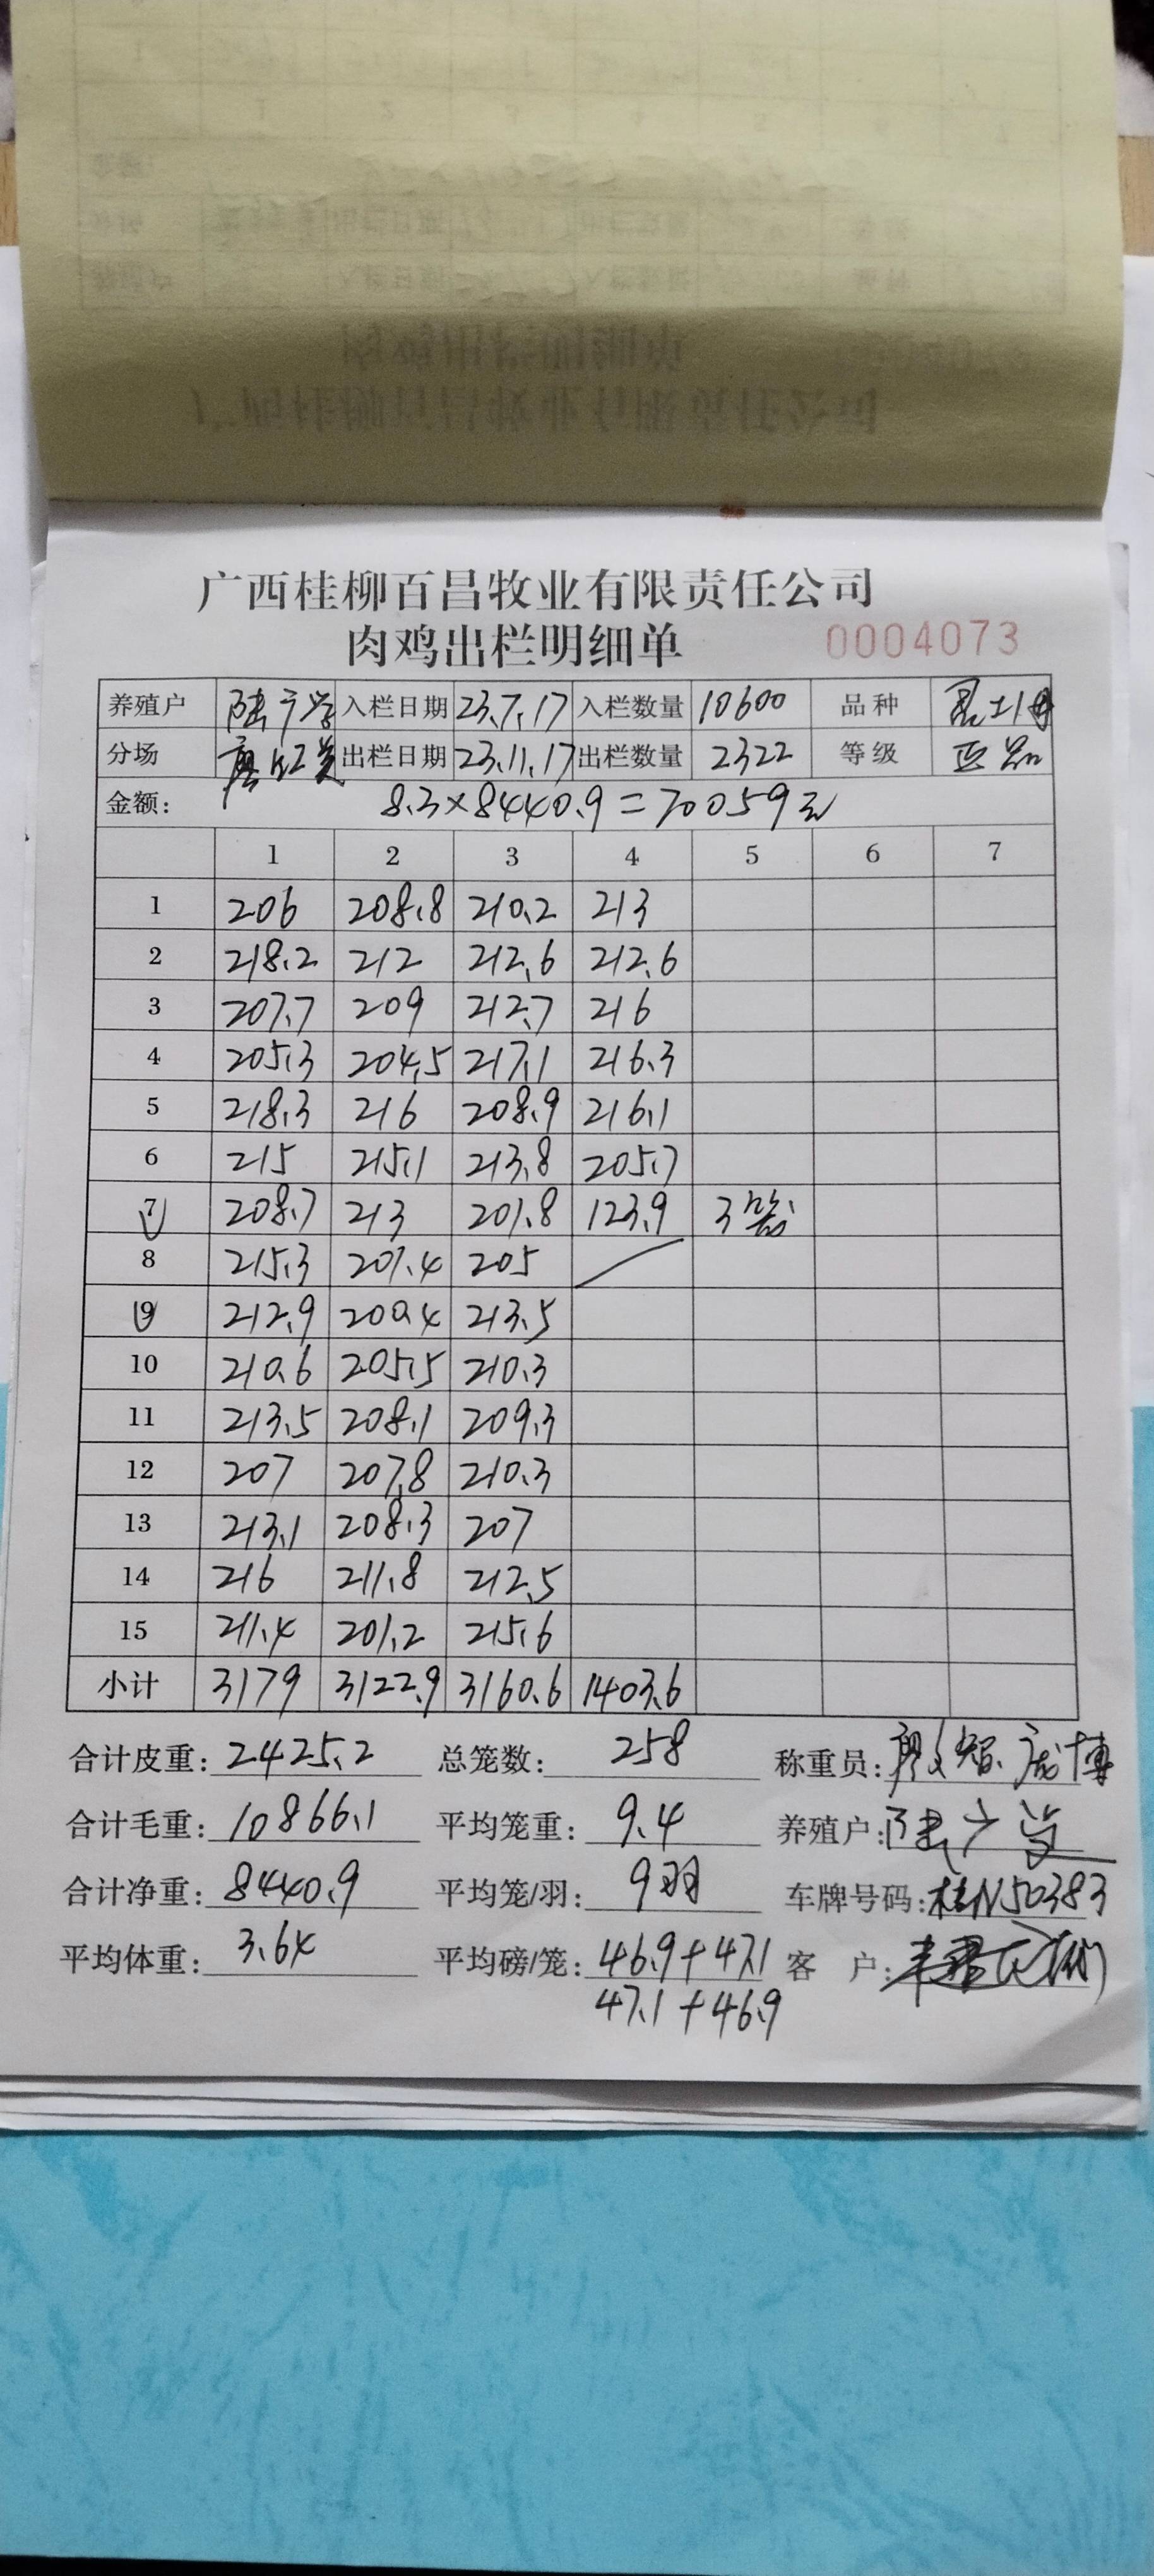 广西桂柳百昌牧业有限责任公司
肉鸡出栏明细单 0004073
养殖户 入栏日期 23.7.17 入栏数量 10600 品种
分场 出栏日期 23.11.17 出栏数量 2322 等级
金额: 8.3×8440.9=70059元
1 2 3 4 5 6 7
1 206 208.8 210.2 213
2 218.2 212 212.6 212.6
3 207.7 209 212.7 216
4 205.3 204.5 217.1 216.3
5 218.3 216 208.9 216.1
6 215 215.1 213.8 205.7
7 208.7 213 201.8 123.9 3笼
8 215.3 201.4 205
9 212.9 200.4 213.5
10 210.6 205.5 210.3
11 213.5 208.1 209.3
12 207 207.8 210.3
13 213.1 208.3 207
14 216 211.8 212.5
15 211.4 201.2 215.6
小计 3179 3122.9 3160.6 1403.6
合计皮重: 2425.2 总笼数: 258 称重员:
合计毛重: 10866.1 平均笼重: 9.4 养殖户:
合计净重: 8440.9 平均笼/羽: 9羽 车牌号码: 桂N50383
平均体重: 3.64 平均磅/笼: 46.9+47.1 客 户:
47.1+46.9